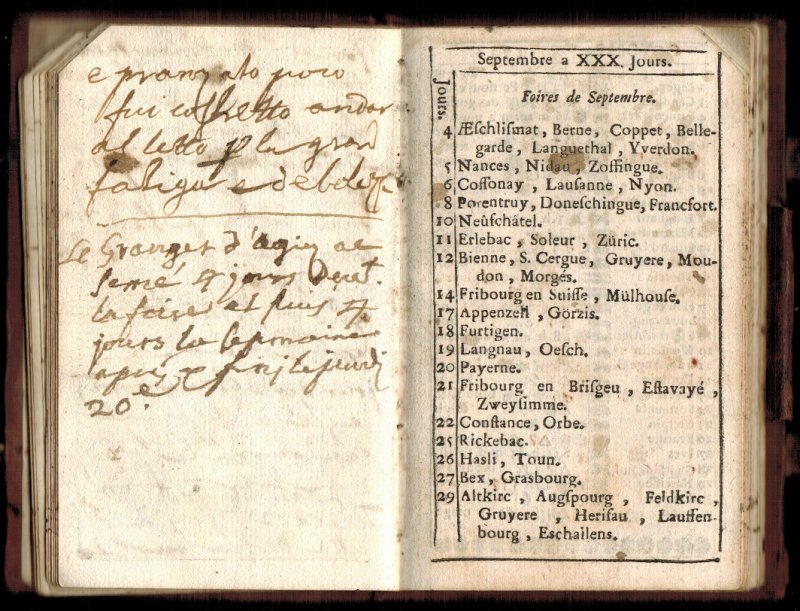 e pranzato poco
fui costretto andar
al letto p la grand
fatigu e debolezza
Le Granger d'agiez ae
semé 4 jours devt.
la foire et puis 4
jours la semaine
apres & finj le jeudj
20e.
Septembre a XXX. Jours.
Jours.
Foires de Septembre.
4 Æſchliſmat, Berne, Coppet, Belle-
garde, Languethal, Yverdon.
5 Nances, Nidau, Zoffingue.
6 Coſſonay, Lauſanne, Nyon.
8 Porentruy, Doneſchingue, Francfort.
10 Neûfchâtel.
11 Erlebac, Soleur, Züric.
12 Bienne, S. Cergue, Gruyere, Mou-
don, Morges.
14 Fribourg en Suiſſe, Mülhouſe.
17 Appenzell, Görzis.
18 Furtigen.
19 Langnau, Oeſch.
20 Payerne.
21 Fribourg en Briſgeu, Eſtavayé,
Zweyſimme.
22 Conſtance, Orbe.
25 Rickebac.
26 Hasli, Toun.
27 Bex, Grasbourg.
29 Altkirc, Augſpourg, Feldkirc,
Gruyere, Heriſau, Lauffen-
bourg, Eschallens.